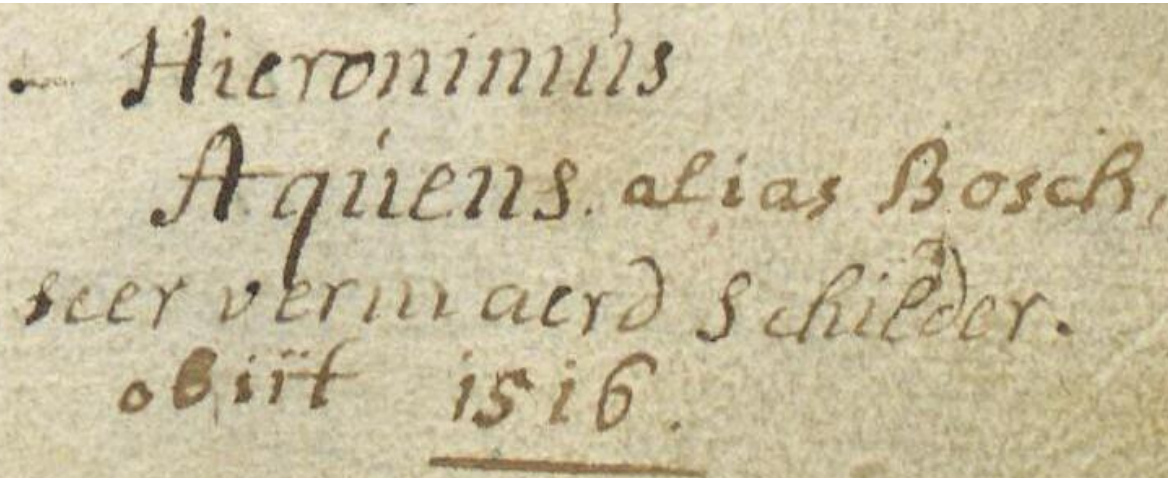 Hieronimus
Aquens. alias Bosch,
seer vermaerd Schilder.
obijt 1516.